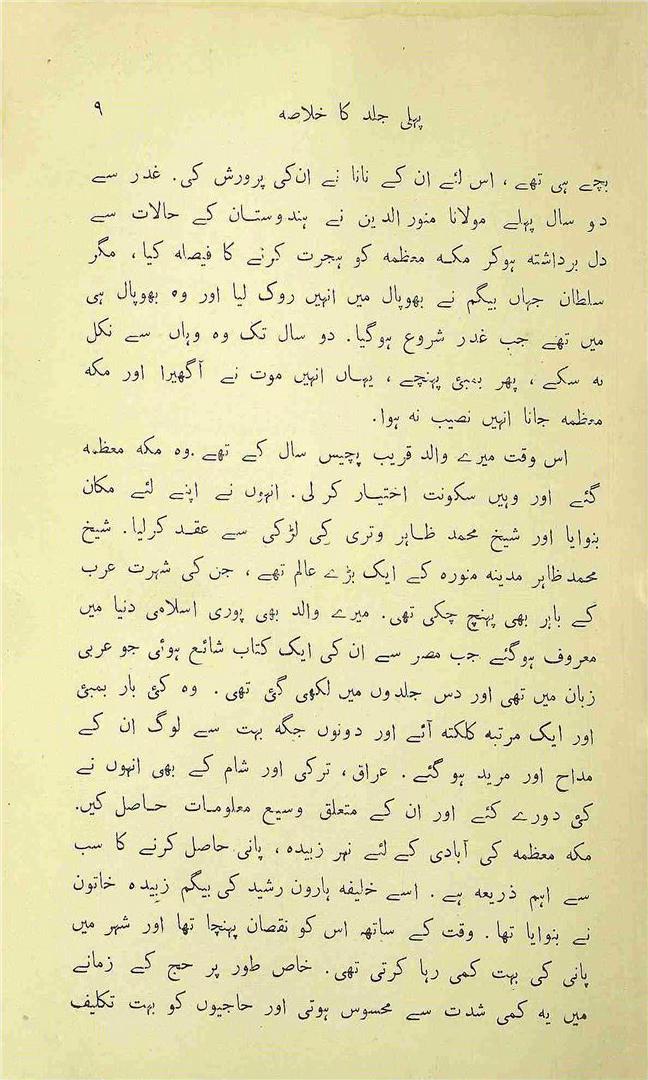 پہلی جلد کا خلاصہ ۹
بچے ہی تھے ، اس لئے ان کے نانا نے ان کی پرورش کی . غدر سے
دو سال پہلے مولانا منور الدین نے ہندوستان کے حالات سے
دل برداشتہ ہوکر مکہ معظمہ کو ہجرت کرنے کا فیصلہ کیا ، مگر
سلطان جہاں بیگم نے بھوپال میں انہیں روک لیا اور وہ بھوپال ہی
میں تھے جب غدر شروع ہوگیا . دو سال تک وہ وہاں سے نکل
نہ سکے ، پھر بمبئ پہنچے ، یہاں انہیں موت نے آگھیرا اور مکہ
معظمہ جانا انہیں نصیب نہ ہوا .
اس وقت میرے والد قریب پچیس سال کے تھے . وہ مکہ معظمہ
گئے اور وہیں سکونت اختیار کر لی . انہوں نے اپنے لئے مکان
بنوایا اور شیخ محمد ظاہر وتری کی لڑکی سے عقد کرلیا . شیخ
محمد ظاہر مدینہ منورہ کے ایک بڑے عالم تھے ، جن کی شہرت عرب
کے باہر بھی پہنچ چکی تھی . میرے والد بھی پوری اسلامی دنیا میں
معروف ہوگئے جب مصر سے ان کی ایک کتاب شائع ہوئی جو عربی
زبان میں تھی اور دس جلدوں میں لکھی گئ تھی . وہ کئ بار بمبئ
اور ایک مرتبہ کلکتہ آئے اور دونوں جگہ بہت سے لوگ ان کے
مداح اور مرید ہو گئے . عراق ، ترکی اور شام کے بھی انہوں نے
کئ دورے کئے اور ان کے متعلق وسیع معلومات حاصل کیں .
مکہ معظمہ کی آبادی کے لئے نہر زبیدہ ، پانی حاصل کرنے کا سب
سے اہم ذریعہ ہے . اسے خلیفہ ہارون رشید کی بیگم زبیدہ خاتون
نے بنوایا تھا . وقت کے ساتھ اس کو نقصان پہنچا تھا اور شہر میں
پانی کی بہت کمی رہا کرتی تھی . خاص طور پر حج کے زمانے
میں یہ کمی شدت سے محسوس ہوتی اور حاجیوں کو بہت تکلیف